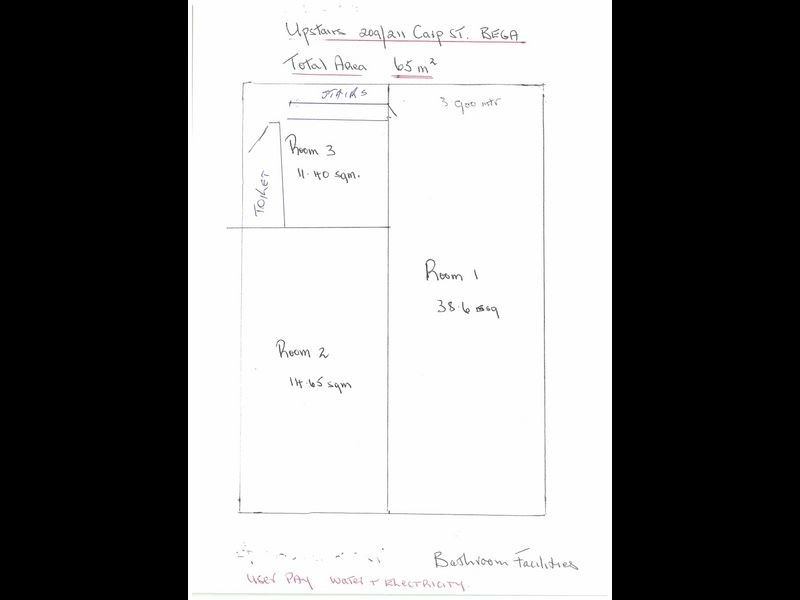 Upstairs 209/211 Carp ST. BEGA
Total Area 65m²
STAIRS
3 900 mtr
Room 3
11.40 sqm.
TOILET
Room 1
38.6 sq
Room 2
14.65 sqm
Bathroom Facilities
USER PAY WATER + ELECTRICITY